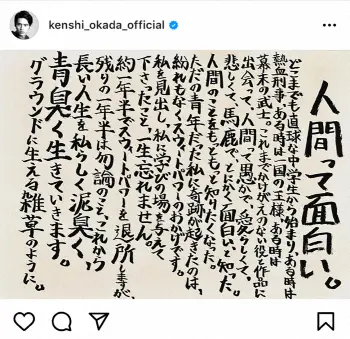 kenshi_okada_official
人間って面白い。
どこまでも直球な中学生から始まり、ある時は
熱血刑事、ある時は一国の王様、ある時は
幕末の武士。これまでかけがえのない役と作品に
出会って、人間って愚かで、愛らしくて、
悲しくて、馬鹿で、とにかく面白いと知った。
人間のことをもっともっと知りたくなった。
ただの青年だった私に奇跡が起きたのは、
紛れもなくスウィートパワーのおかげです。
私を見出し、私に学びの場を与えて
下さったこと、一生忘れません。
約一年半でスウィートパワーを退所しますが、
残りの一年半は勿論のこと、これから
長い人生を私らしく泥臭く、
青臭く生きていきます。
グラウンドに生える雑草のように。